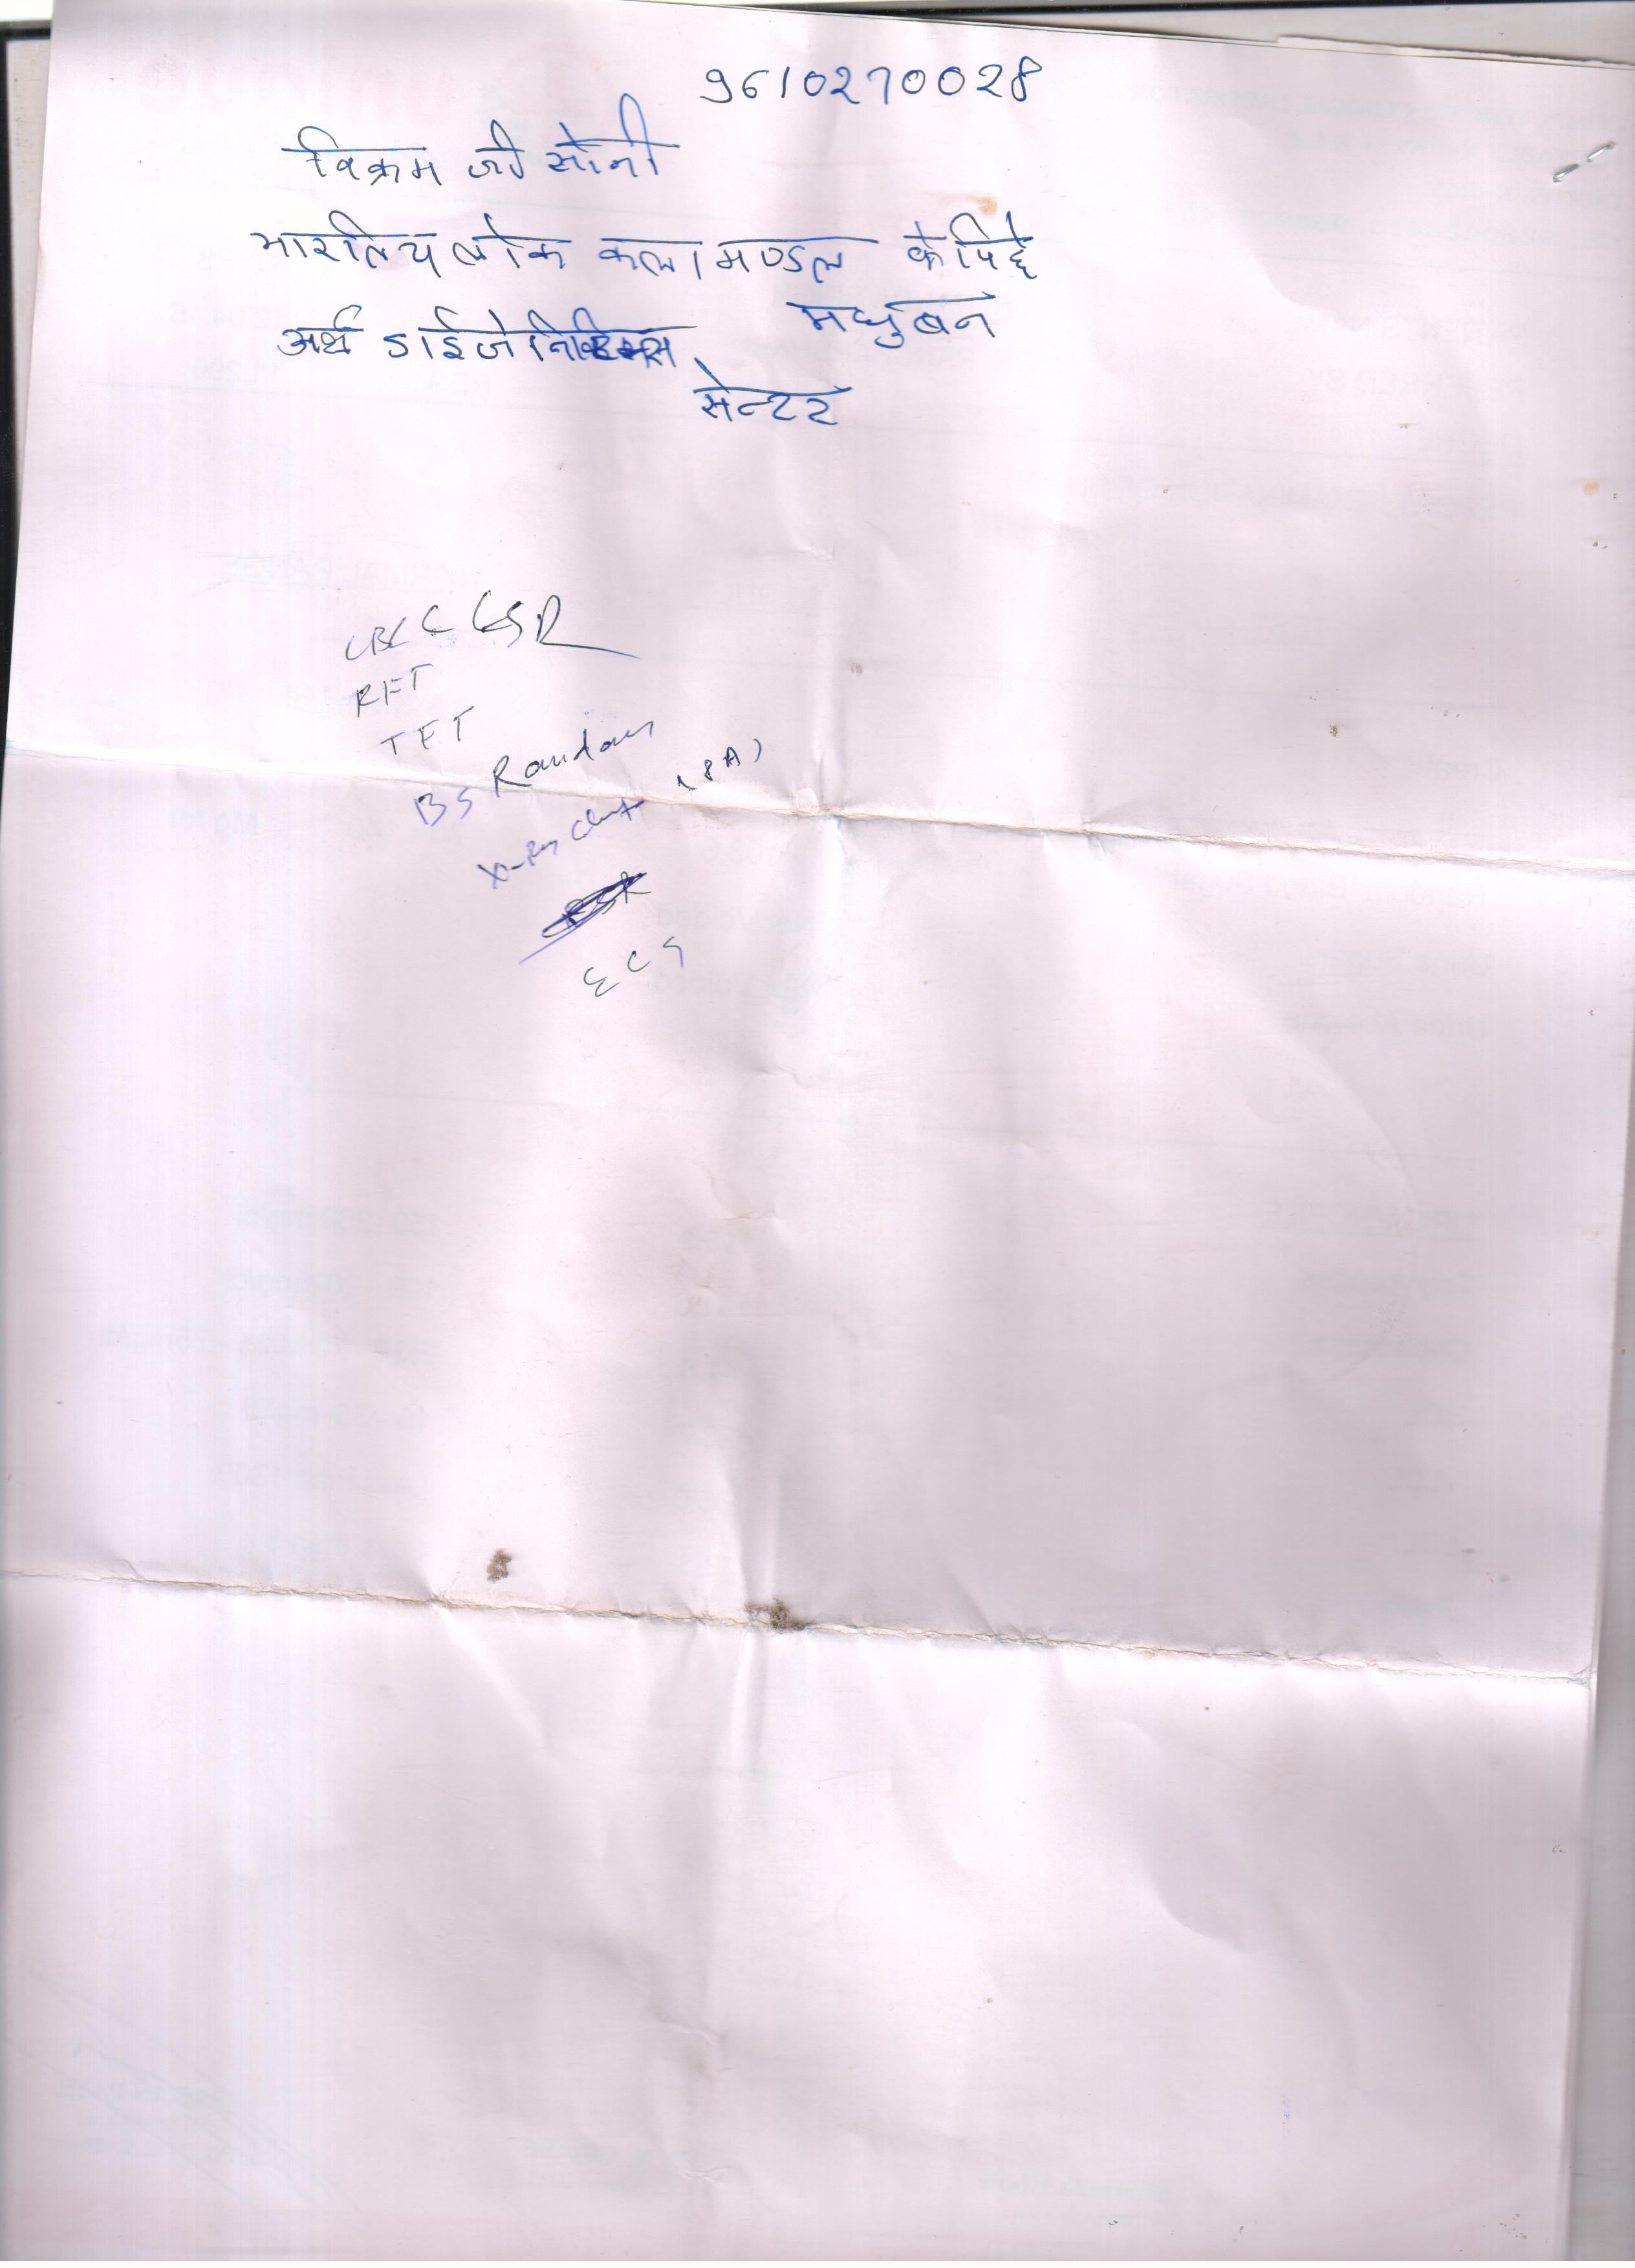 9610270028
विक्रम जी सोनी
भारतिय लोक कला मण्डल के पिछे
मधुबन
अर्थ डाईजेनिस्टिक्स
सेन्टर
CBC C ESR
RFT
TFT
BS Random
X-Ray Chest (PA)
ESR
ECG